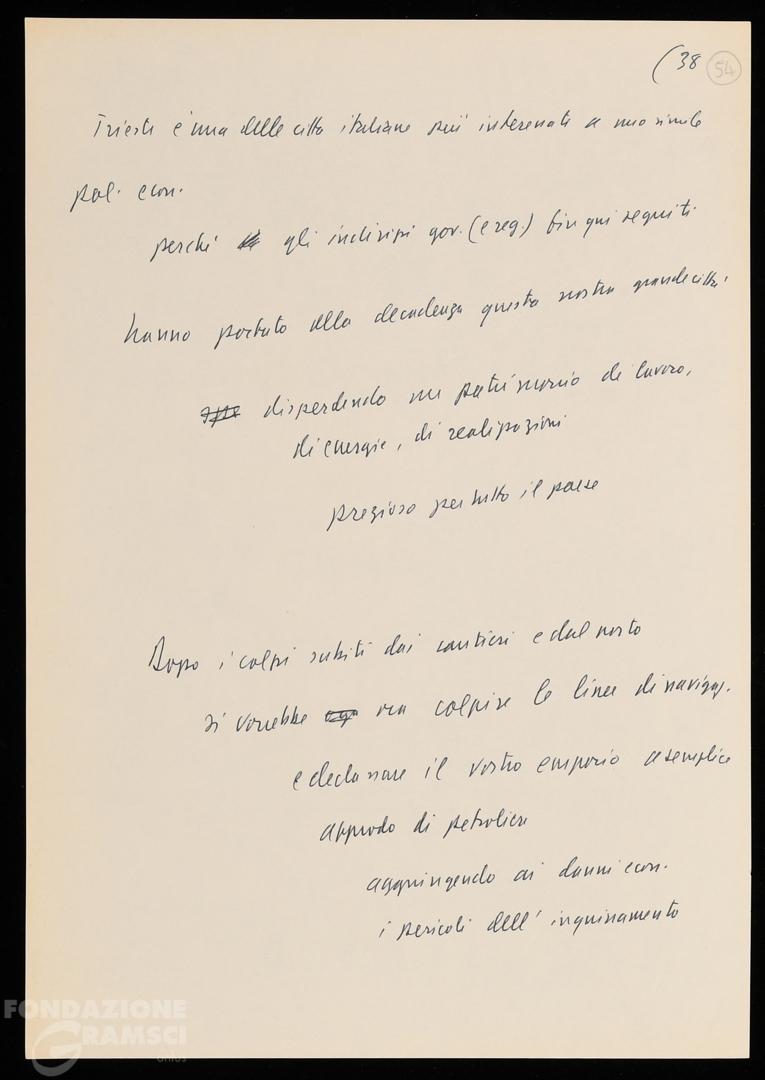 (38 54
Trieste è una delle città italiane più interessate a una simile
pol. econ.
perché gli indirizzi gov. (e reg.) fin qui seguiti
hanno portato alla decadenza questa nostra grande città
disperdendo un patrimonio di lavoro,
di energie, di realizzazioni
prezioso per tutto il paese
Dopo i colpi subiti dai cantieri e dal porto
si vorrebbe ora colpire le linee di navigaz.
e declassare il vostro emporio a semplice
approdo di petroliere
aggiungendo ai danni econ.
i pericoli dell'inquinamento
FONDAZIONE
GRAMSCI
onlus